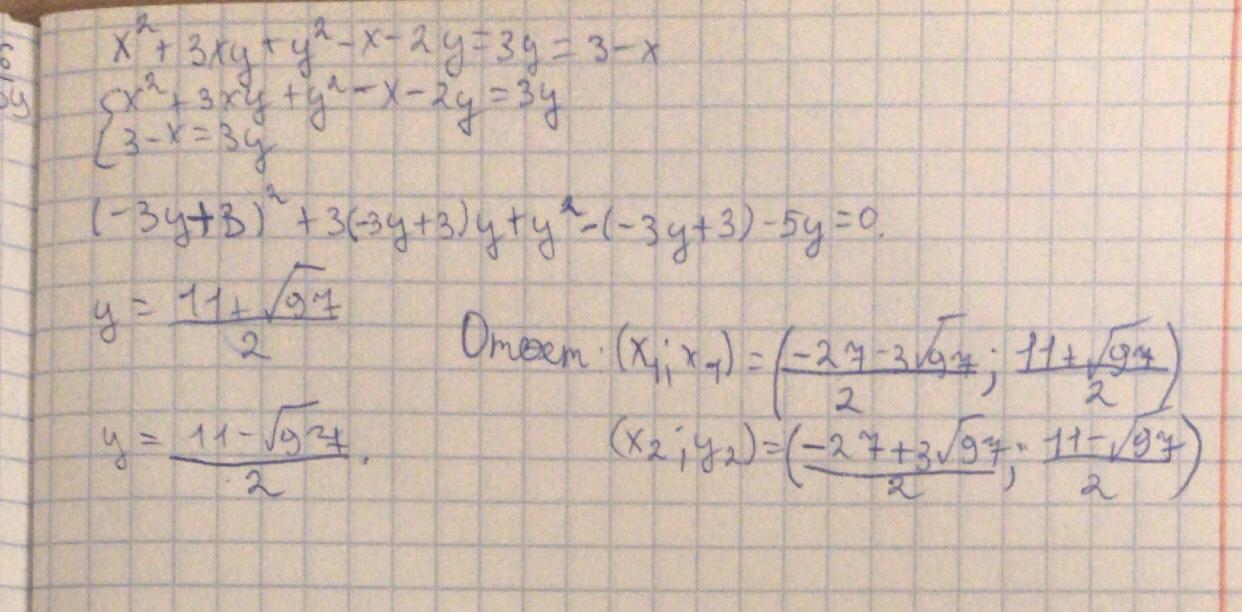 x² + 3xy + y² - x - 2y = 3y = 3 - x
{x² + 3xy + y² - x - 2y = 3y
3 - x = 3y
(-3y+3)² + 3(-3y+3)y + y² - (-3y+3) - 5y = 0.
y = (11+√97)/2
Ответ: (x₁; x₁) = ((-27-3√97)/2; (11+√97)/2)
y = (11-√97)/2.
(x₂; y₂) = ((-27+3√97)/2; (11-√97)/2)